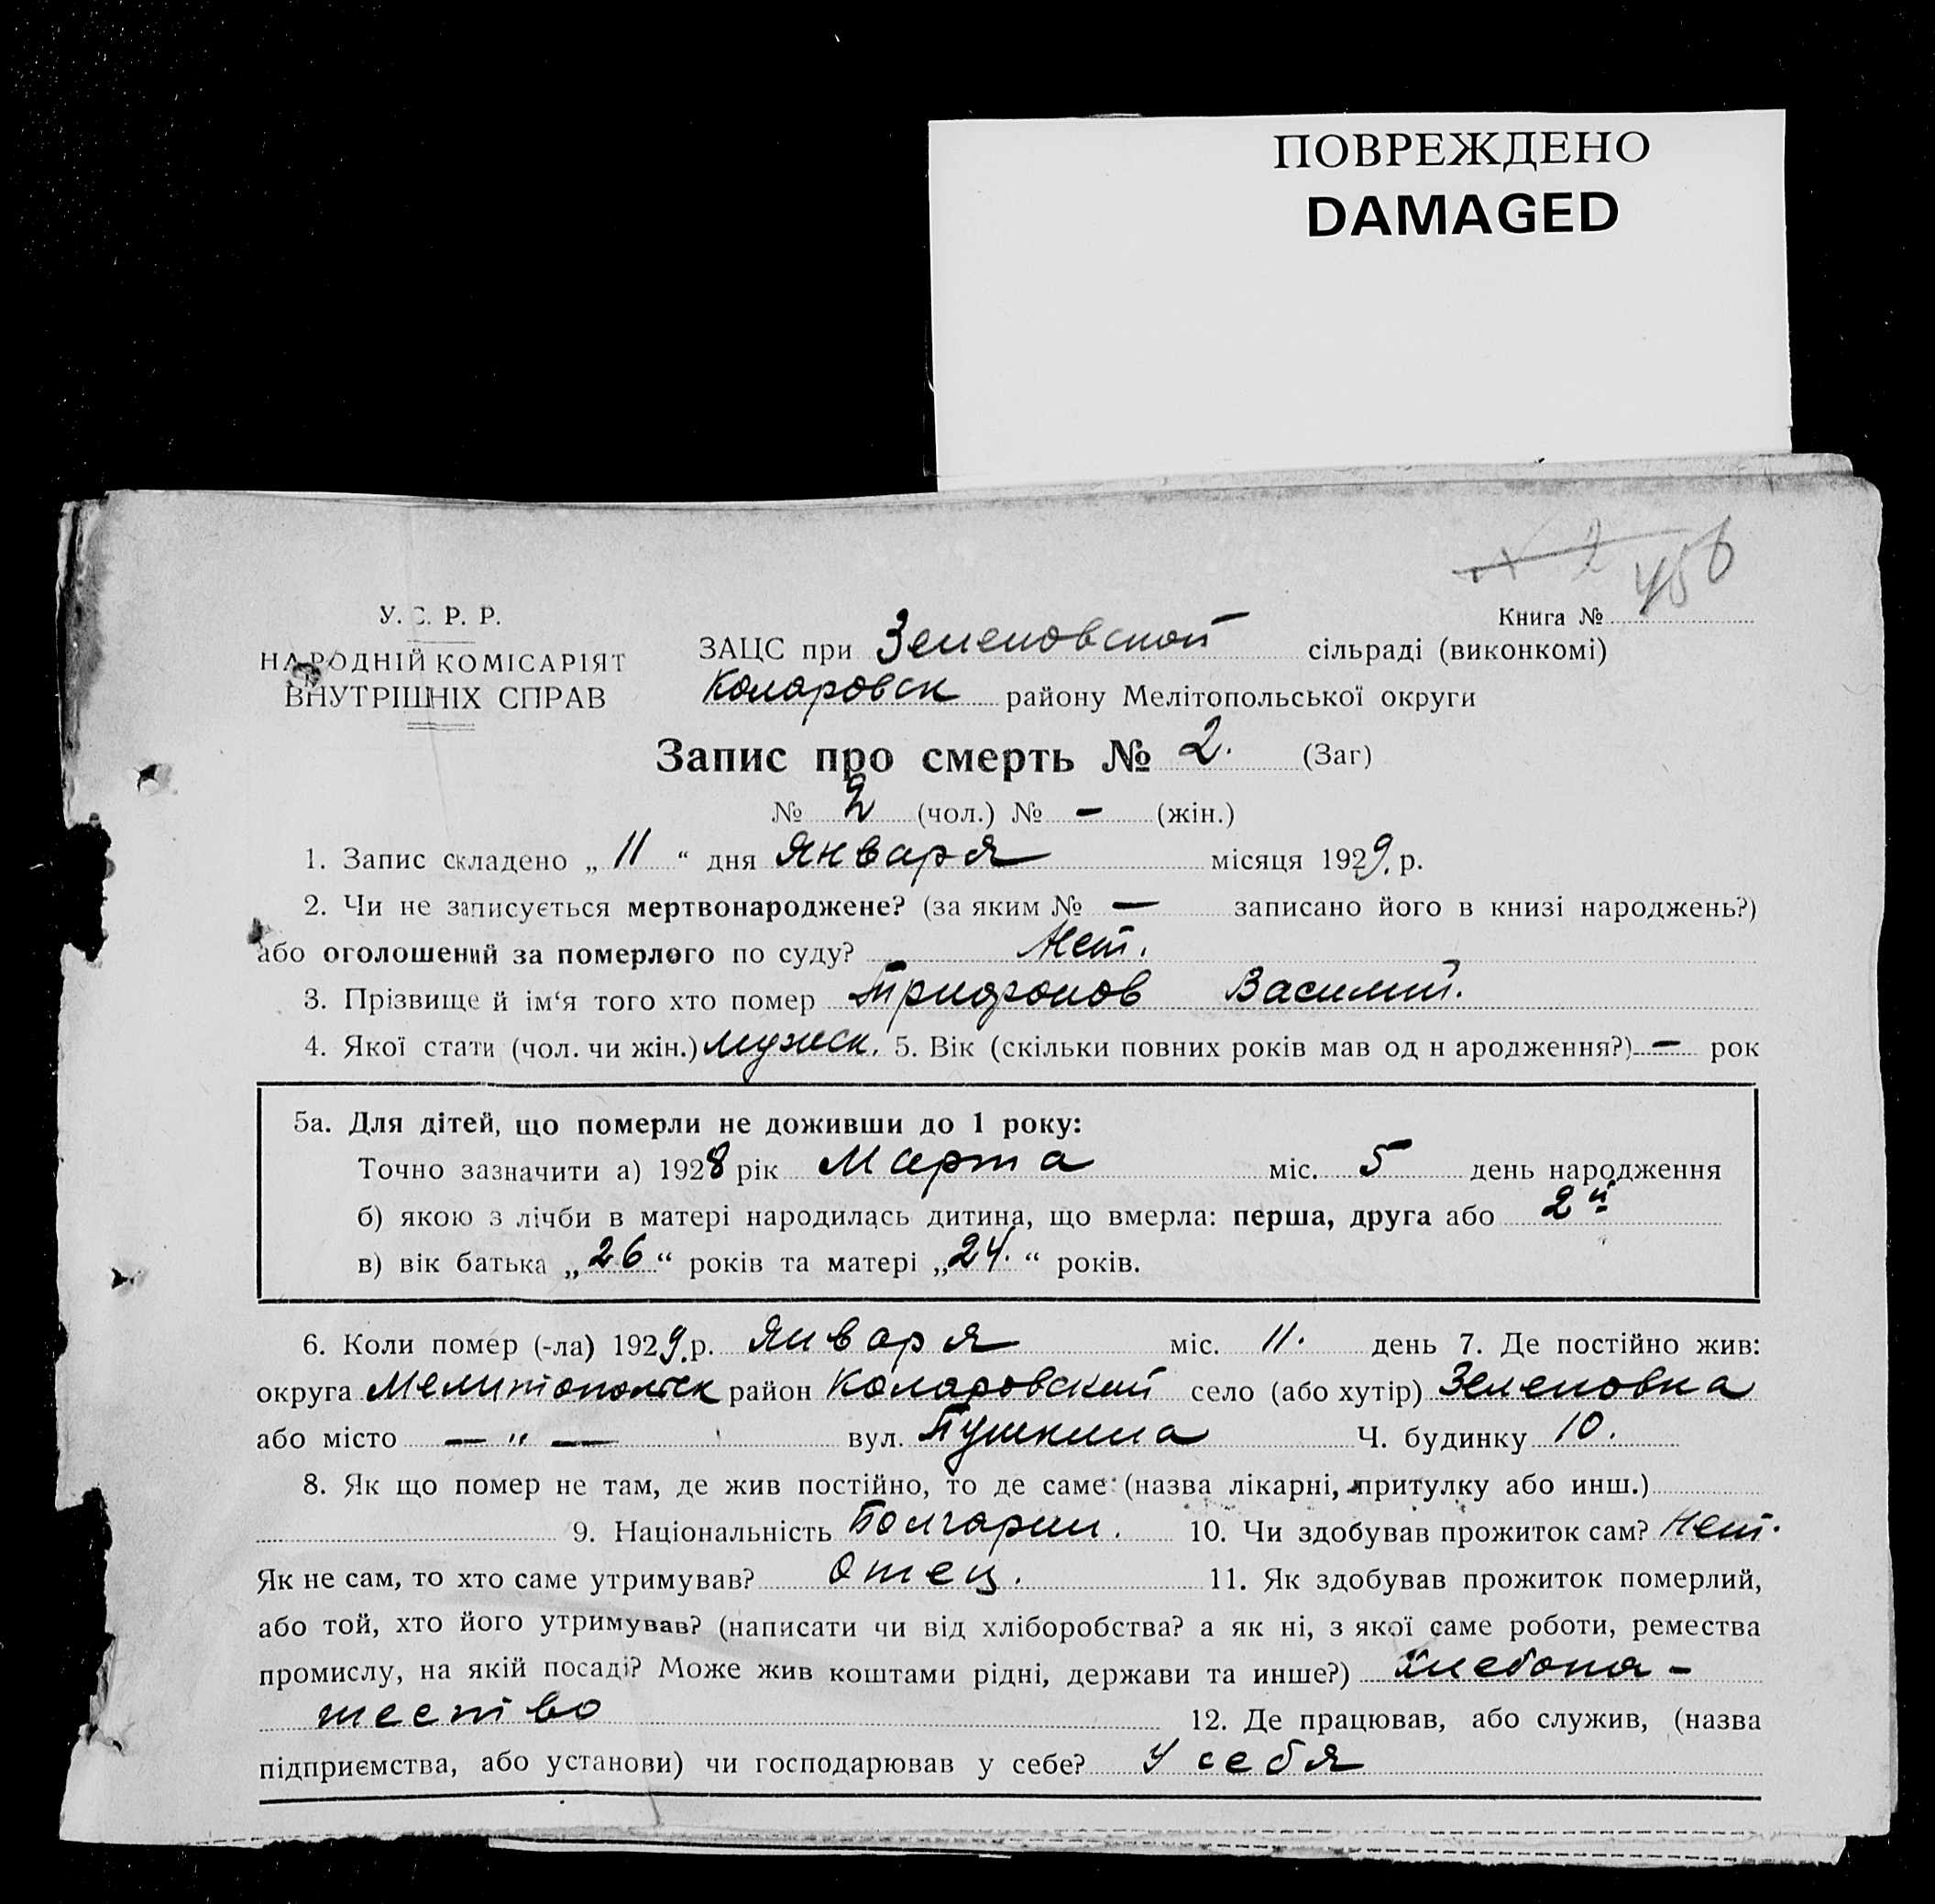 ПОВРЕЖДЕНО
DAMAGED
№ 2 456
Книга №
У. С. Р. Р.
НАРОДНІЙ КОМІСАРІЯТ
ВНУТРІШНІХ СПРАВ
ЗАЦС при Зеленовской сільраді (виконкомі)
Коларовск району Мелітопольської округи
Запис про смерть № 2. (Заг)
№ 2 (чол.) № — (жін.)
1. Запис складено „ 11 “ дня Января місяця 1929. р.
2. Чи не записується мертвонароджене? (за яким № — записано його в книзі народжень?)
або оголошений за померлого по суду? Нет.
3. Прізвище й ім‘я того хто помер Трифонов Василий.
4. Якої стати (чол. чи жін.) мужск. 5. Вік (скільки повних років мав од н ародження?) — рок
5а. Для дітей, що померли не доживши до 1 року:
Точно зазначити а) 1928 рік Марта міс. 5 день народження
б) якою з лічби в матері народилась дитина, що вмерла: перша, друга або 2й
в) вік батька „ 26 “ років та матері „ 24. “ років.
6. Коли помер (-ла) 1929. р. Января міс. 11. день 7. Де постійно жив:
округа Мелитопольск район Коларовский село (або хутір) Зеленовка
або місто — „ — вул. Пушкина Ч. будинку 10.
8. Як що помер не там, де жив постійно, то де саме (назва лікарні, притулку або инш.)
9. Національність Болгарин. 10. Чи здобував прожиток сам? Нет.
Як не сам, то хто саме утримував? Отец. 11. Як здобував прожиток померлий,
або той, хто його утримував? (написати чи від хліборобства? а як ні, з якої саме роботи, ремества
промислу, на якій посаді? Може жив коштами рідні, держави та инше?) Хлебопа-
шество 12. Де працював, або служив, (назва
підприємства, або установи) чи господарював у себе? У себя